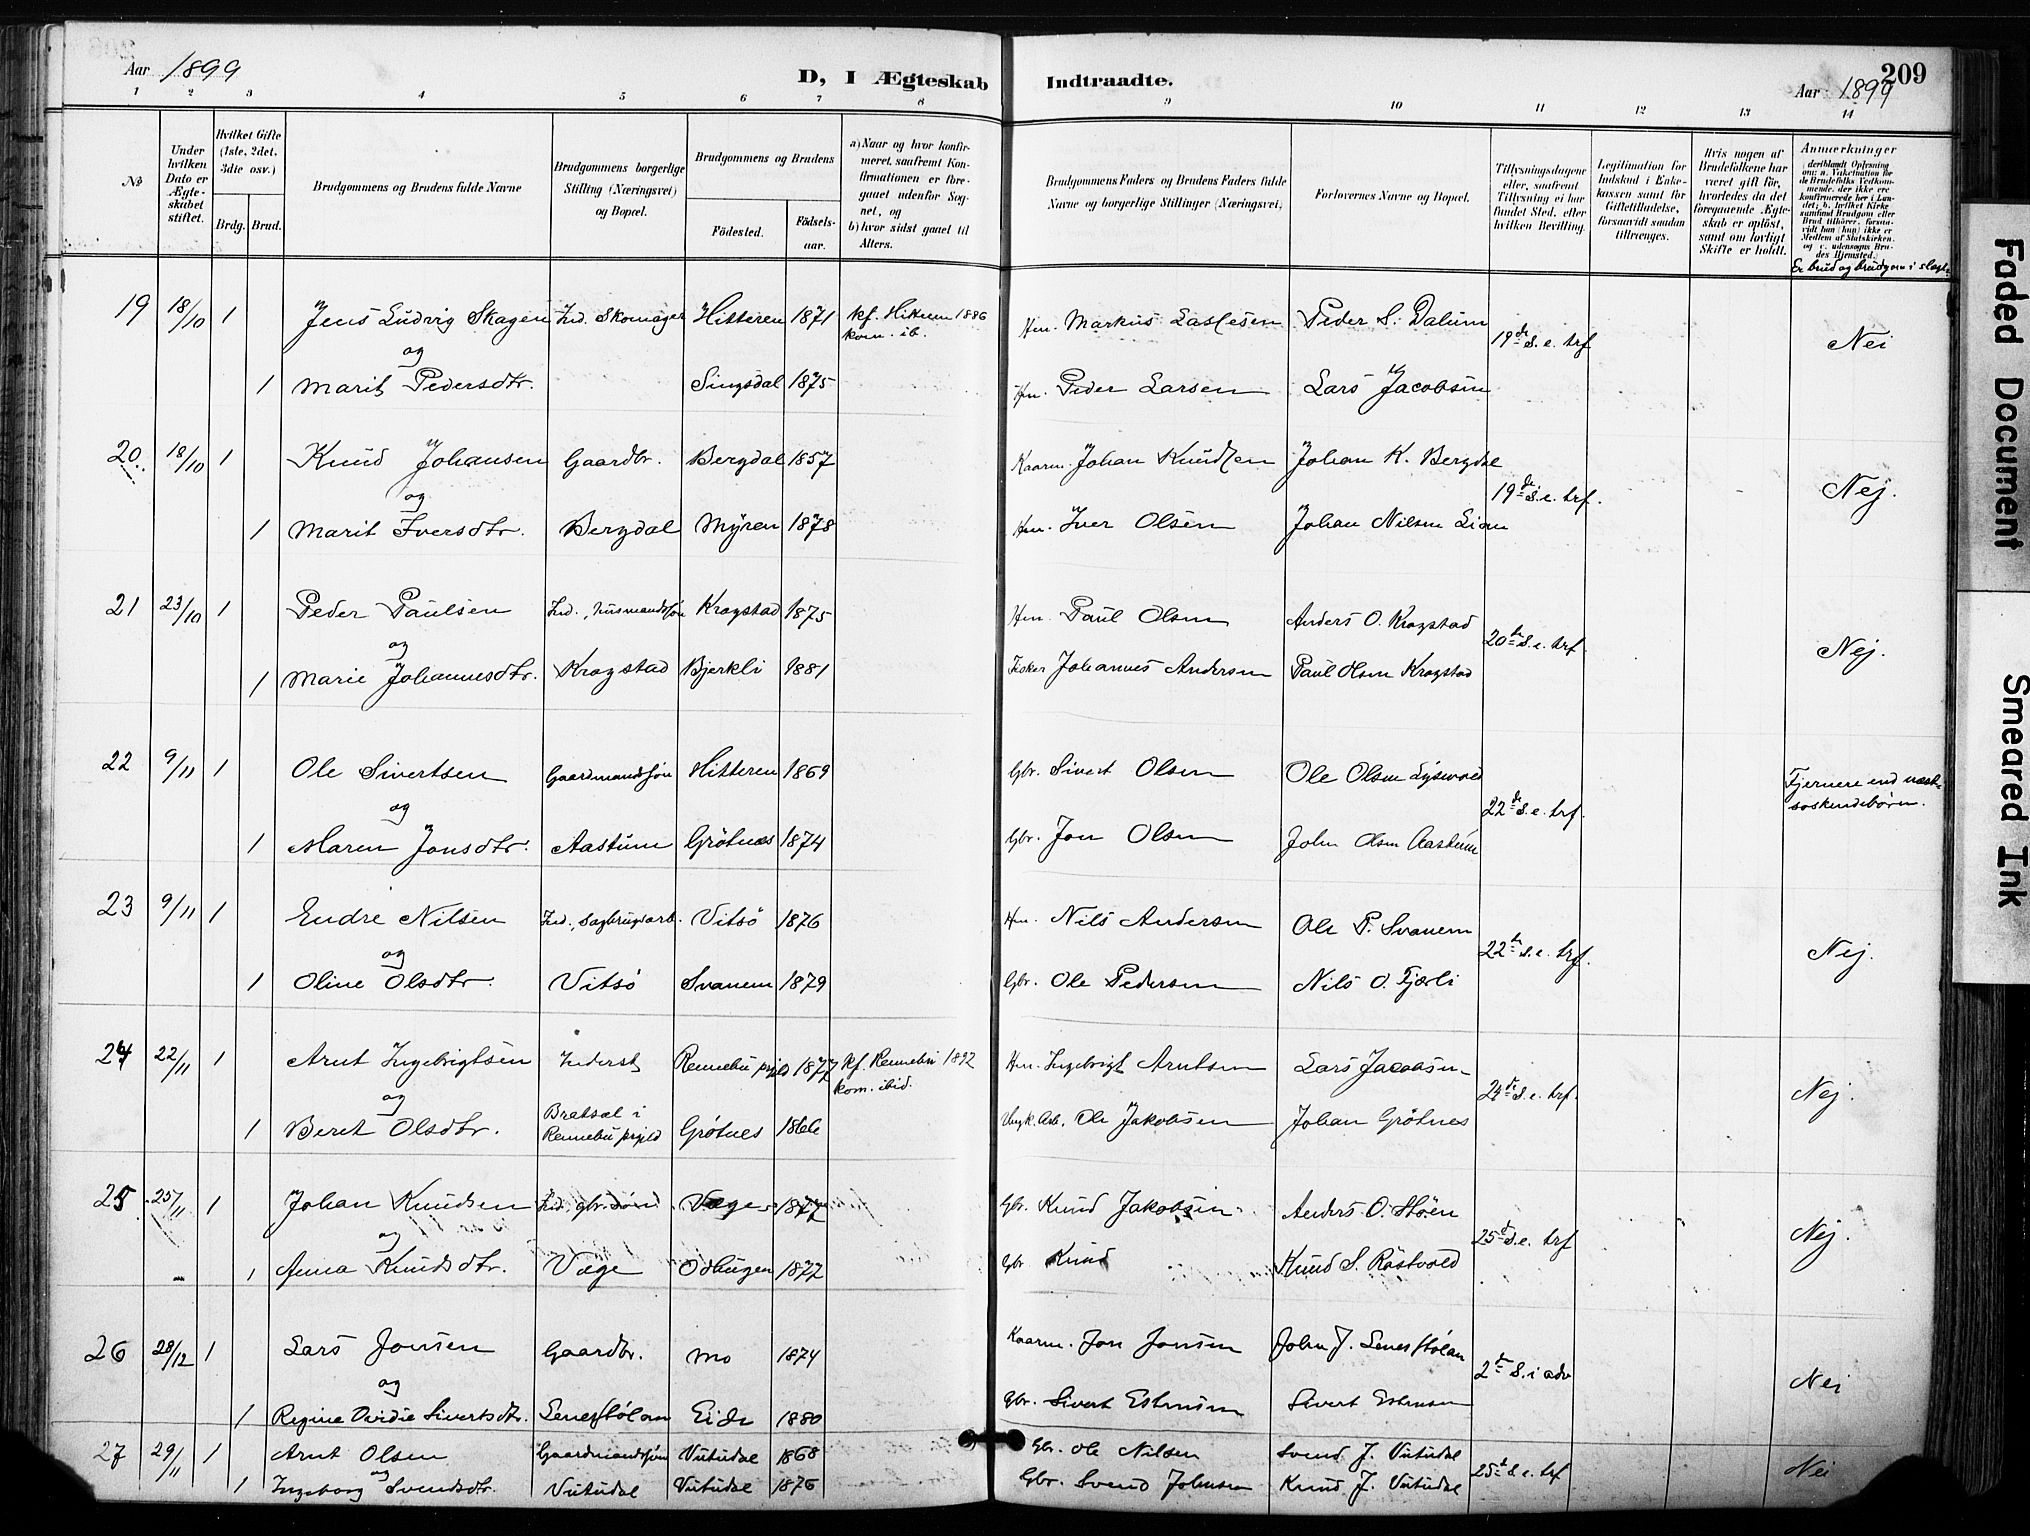 Aar 1899
D, I Ægteskab Indtraadte.
Aar 1899
209
1 2 3 4 5 6 7 8 9 10 11 12 13 14
№
Under hvilken Dato er Ægteskabet stiftet.
Hvilket Gifte (1ste, 2det, 3die osv.)
Brdg. Brud.
Brudgommens og Brudens fulde Navne
Brudgommens borgerlige Stilling (Næringsvei) og Bopæl.
Brudgommens og Brudens
Födested.
Födsels-aar.
a) Naar og hvor konfirmeret, saafremt Konfirmationen er foregaaet udenfor Sognet, og
b) hvor sidst gaaet til Alters.
Brudgommens Faders og Brudens Faders fulde Navne og borgerlige Stillinger (Næringsvei)
Forlovernes Navne og Bopæl.
Tillysningsdagene eller, saafremt Tillysning ei har fundet Sted, efter hvilken Bevilling.
Legitimation for Indskud i Enkekassen samt for Giftetilladelse, forsaavidt saadan tiltrænges.
Hvis nogen af Brudefolkene har været gift för, hvorledes da det foregaaende Ægteskab er oplöst, samt om lovligt Skifte er holdt.
Anmærkninger
(deriblandt Oplysning om: a. Vakcination for de Brudefolks Vedkommende, der ikke ere konfirmerede her i Landet; b. hvilket Kirkesamfund Brudgom eller Brud tilhörer, forsaavidt han (hun) ikke er Medlem af Statskirken, og c. udensogns Brudes Hjemsted.)
Er brud og brudgom i slægt
19 18/10 1 Jens Ludvig Skagen Ind. Skomager Hitteren 1871 kf. Hitteren 1886 Hm. Markus Lassesen Peder S. Dalum
kom. ib. 19de S. e. trf Nei
og
1 Marit Pedersdtr. Singsdal 1875 Hm. Peder Larsen Lars Jacobsen
20. 18/10 1 Knud Johansen Gaardbr. Bergdal 1857 Kaarm. Johan Knudsen Johan K. Bergdal
og 19de S. e. trf. Nej.
1 Marit Iversdtr. Bergdal Myren 1878 Hm. Iver Olsen Johan Nilsen Lien
21 23/10 1 Peder Paulsen Ind., husmandssøn Kragstad 1875 Hm. Paul Olsen Anders O. Kragstad
og 20de S. e. trf. Nej.
1 Marie Johannesdtr. Kragstad Bjerkli 1881 Fisker Johannes Andersen Paul Olsen Kragstad
22 9/11 1 Ole Sivertsen Gaardmandssøn Hitteren 1869 Gbr. Sivert Olsen Ole Olsen
og 22de S. e. trf. Fjernere end næst-
søskendebørn.
1 Maren Jonsdtr. Aastum Grötnæs 1874 Gbr. Jon Olsen John Olsen Aastum
23 9/11 1 Endre Nilsen Ind., sagbrugsarb. Vitsö 1876 Hm. Nils Andersen Ole P. Svanem
og 22de S. e. trf. Nej.
1 Oline Olsdtr. Vitsö Svanem 1879 Gbr. Ole Pedersen Nils O. Fjærli
24 22/11 1 Arnt Ingebrigtsen Inderst Rennebu prgjld 1877 kf. Rennebu 1892 Hm. Ingebrigt Arntsen Lars Jacobsen
kom. ibid.
og 24de S. e. trf. Nej.
Bratsæl i
1 Beret Olsdtr. Rennebu prgjld Grötnes 1866 Ole Jakobsen Johan Grötnes
25 25/11 1 Johan Knudsen Ind. gbr.sønd Væge 1877 Gbr. Knud Jakobsen Anders O. Støen
og 25de S. e. trf Nej.
1 Anna Knudsdtr. Væge Odhugen 1877 Gbr Knud Knud S. Røstvold
26 28/12 1 Lars Jonsen Gaardbr. Mo 1874 Kaarm. Jon Jonsen John J. Lenesstølan
og 2de S. i adv Nei
1 Regine Ovidie Sivertsdtr. Lenesstølan Eide 1880 Gbr. Sivert Estensen Sivert Estensen
27 29/11 1 Arnt Olsen Gaardmandssøn Vutudal 1868 Gbr. Ole Nilsen Svend J. Vutudal
og 25de S. e. trf Nei
1 Ingeborg Svendsdtr. Vutudal Vutudal 1876 Gbr. Svend Johnsen Knud J. Vutudal
Faded Document
Smeared Ink